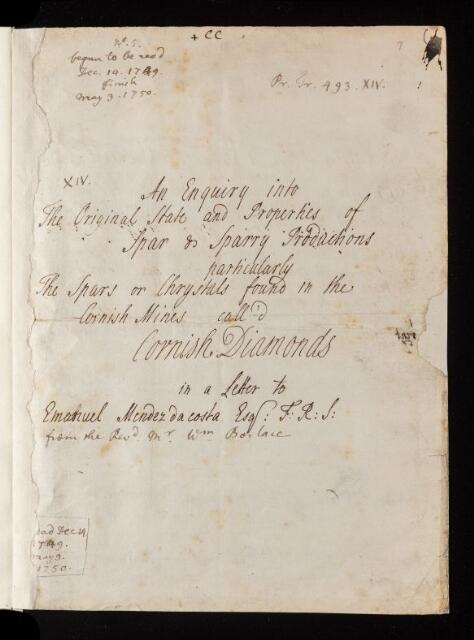 + CC
No. 5.
begun to be read
Dec. 14. 1749.
finish
May 3. 1750.
493. XIV.
XIV.
An Enquiry into
The Original State and Properties of
Spar & Sparry Productions
particularly
The Spars or Chrystals found in the
Cornish Mines call'd
Cornish Diamonds
in a Letter to
Emanuel Mendez da costa Esqr: F: R: S:
from the Revd. Mr. Wm Borlace
ead Dec 14
1749.
May 3.
1750.